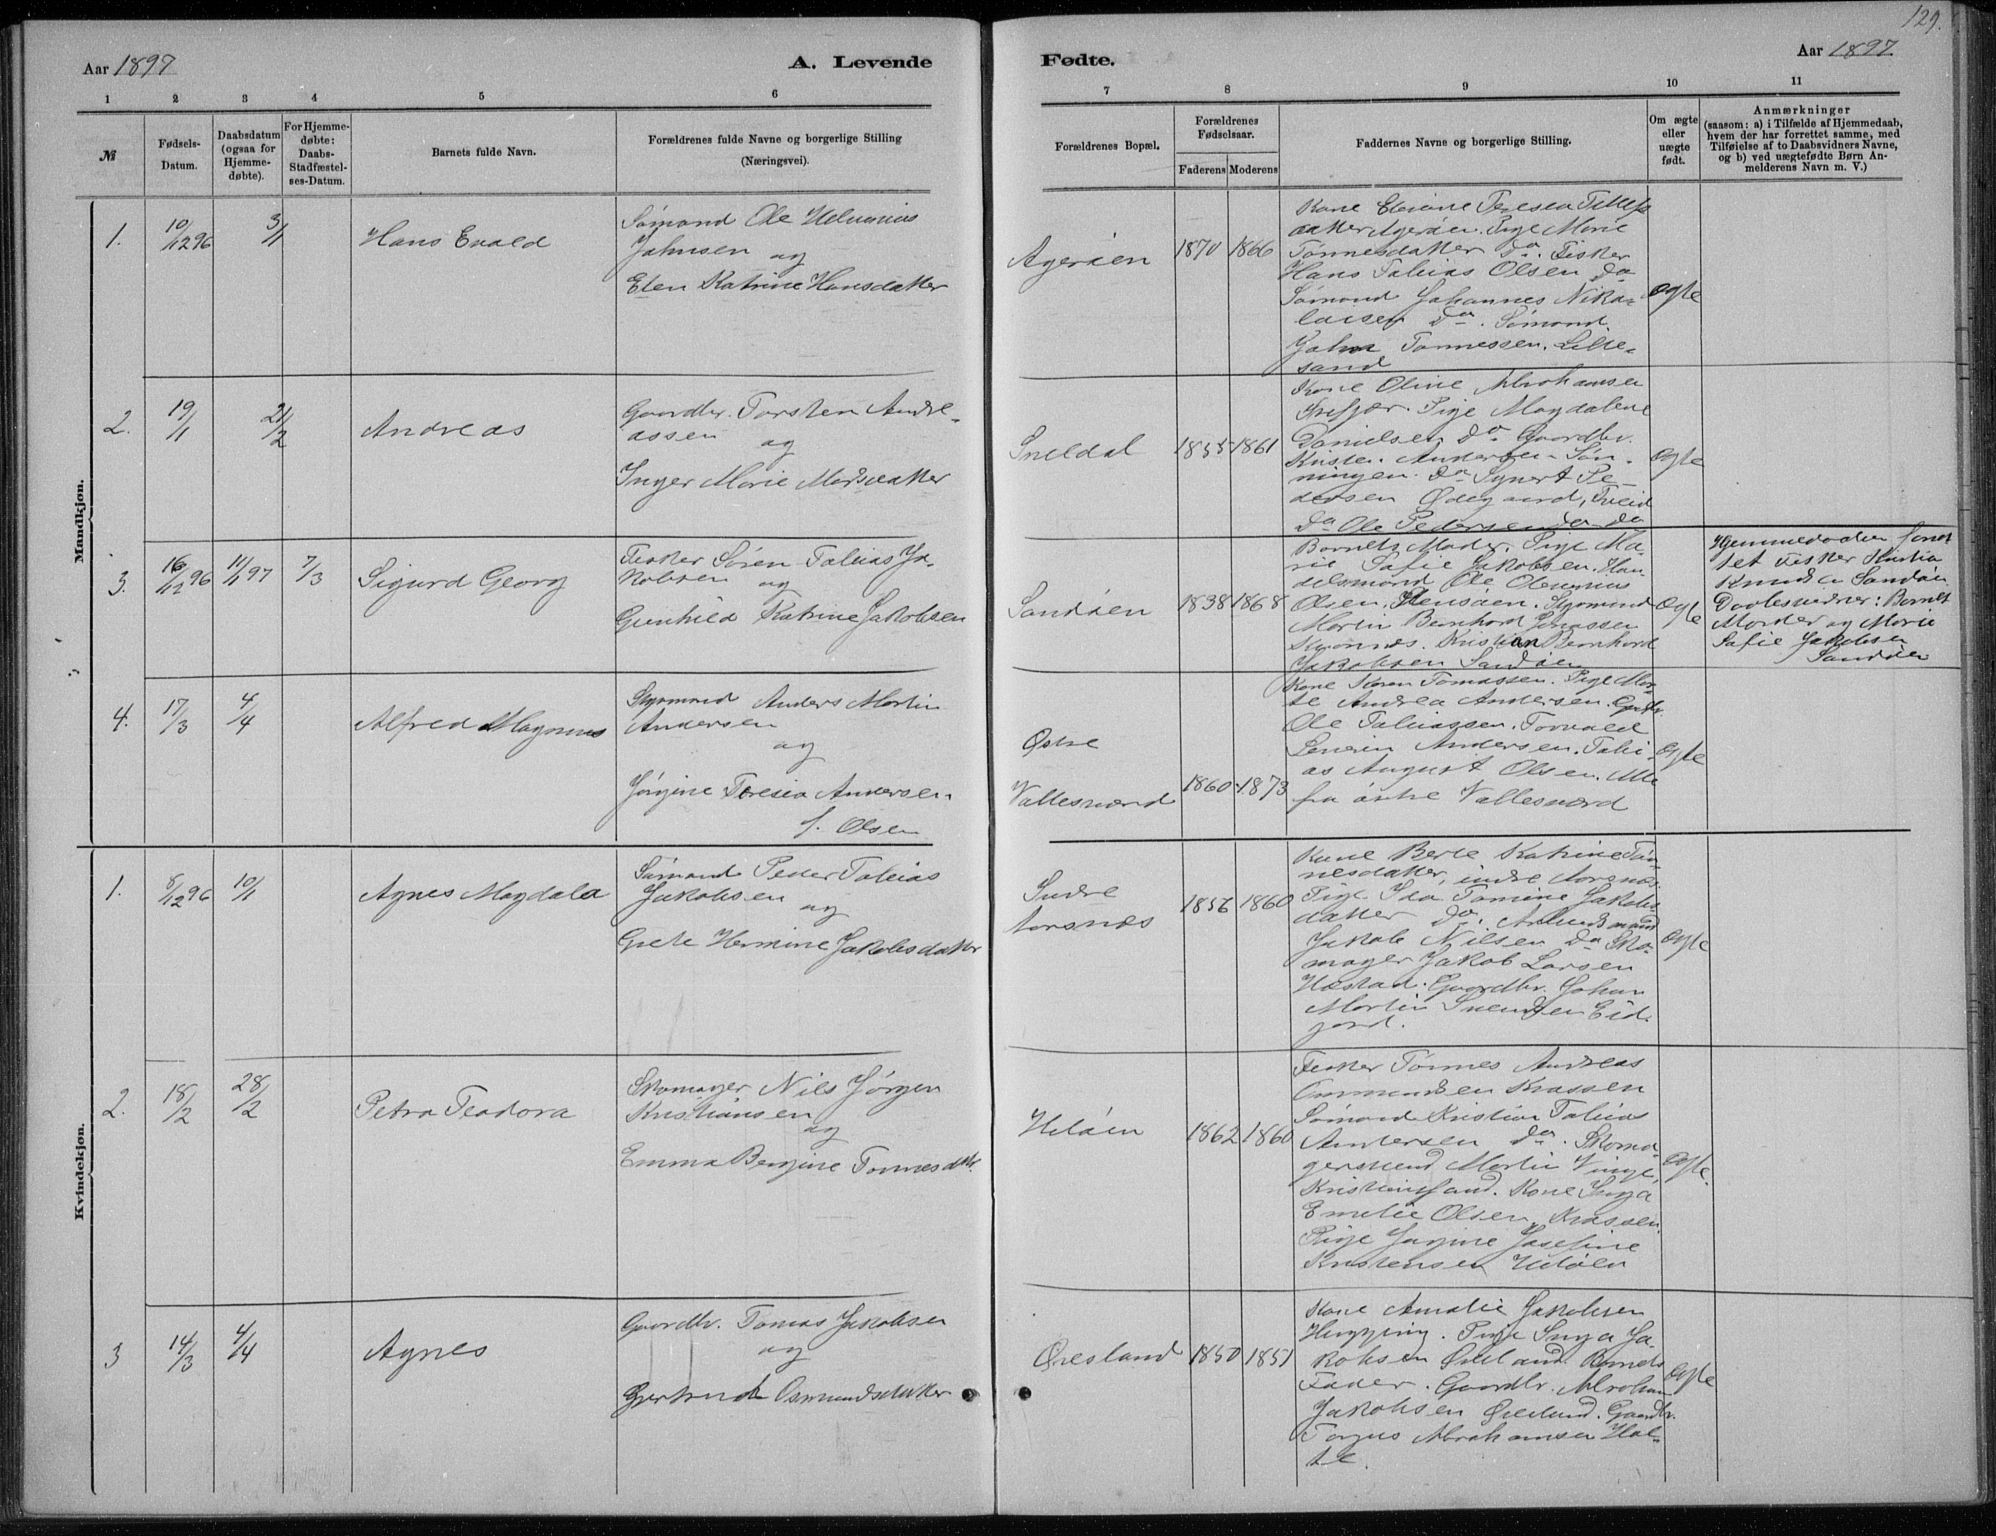 129.
Aar 1897
A. Levende
Fødte.
Aar 1897
1
2
3
4
5
6
7
8
9
10
11
№
Fødsels-
Datum.
Daabsdatum
(ogsaa for
Hjemme-
døbte).
For Hjemme-
døbte:
Daabs-
Stadfæstel-
ses-Datum.
Barnets fulde Navn.
Forældrenes fulde Navne og borgerlige Stilling
(Næringsvei).
Forældrenes Bopæl.
Forældrenes
Fødselsaar.
Faderens
Moderens
Faddernes Navne og borgerlige Stilling.
Om ægte
eller
uægte
født.
Anmærkninger
(saasom: a) i Tilfælde af Hjemmedaab,
hvem der har forrettet samme, med
Tilføielse af to Daabsvidners Navne,
og b) ved uægtefødte Børn An-
melderens Navn m. V.)
Mandkjøn.
1.
10/12 96
3/1
Hans Evald
Sømand Ole
Johnsen og
Elen Katrine Hansdatter
Agerøen
1870
1866
Kone
Pige Marie
Tønnesdatter Do. Fisker
Hans Tobias Olsen Do
Sømand Johannes Niko-
laisen Do. Sømand
John Tønnessen. Lille-
sand
Ægte
2.
19/1
21/2
Andreas
Gaardbr. Torsten Andre-
assen og
Inger Marie Madsdatter
1855
1861
Kone Oline Abrahamsen
Pige Magdalene
Danielsen Do. Gaardbr.
Andersen
Do Synert Pe-
dersen Ødegaard,
Do Ole Pedersen Do Do
Ægte
3.
16/12 96
11/1 97
7/3
Sigurd Georg
Fisker Søren Tobias Ja-
kobsen og
Gunhild Katrine Jakobsen
Sandøen
1838
1868
Barnets Moder. Pige Ma-
rie Sofie Jakobsen. Han-
delsmand Ole
Olsen. Styrmand
Martin Bernhard
Kristian Bernhard
Jakobsen Sandøen
Ægte
Hjemmedaaben forret-
tet Fisker
Knudsen Sandøen
Daabsvidner: Barnets
Moder og Marie
Sofie Jakobsen
Sandøen
4.
17/3
4/4
Alfred Magnus
Styrmand Anders Martin
Andersen
og
Jørgine Teresia Andersen
f. Olsen
Østre
Vallesværd
1860
1873
Kone Karen Tomassen. Pige Mar-
te Andrea Andersen.
Ole Tobiassen. Torvald
Severin Andersen. Tobi-
as August Olsen. Alle
fra østre Vallesværd
Ægte
Kvindekjøn.
1.
8/12 96
10/1
Agnes Magdala
Sømand Peder Tobias
Jakobsen og
Grete Hermine Jakobsdatter
Indre
Aarsnes
1856
1860
Kone Berte Katrine Tøn-
nesdatter, indre Aarsnes.
Pige Ida Tomine Jakobs-
datter Do. Arbeidsmand
Jakob Nilsen Do Sko-
mager Jakob Larsen
Gaardbr. Johan
Martin Svendsen Eid-
jord.
Ægte
2.
18/2
28/2
Petra Teodora
Skomager Nils Jørgen
Kristiansen
og
Emma Bergine Tønnesdtr.
Udøen
1862
1860
Fisker Tønnes Andreas
Ommundsen
Sømand Kristian Tobias
Andersen Do. Skoma-
gersvend Martin Vinge,
Kristiansand. Kone Inga
Emelie Olsen
Pige Jørgine Josefine
Kristensen Udøen
Ægte.
3
14/3
4/4
Agnes
Gaardbr. Tomas Jakobsen
og
Gjertrud Osmundsdatter
Øresland
1850
1851
Kone Amalie Jakobsen
Pige Inga Ja-
kobsen Øresland. Barnets
Fader. Gaardbr. Abraham
Jakobsen Øresland. Gaardbr.
Abrahamsen Hol-
te.
Ægte